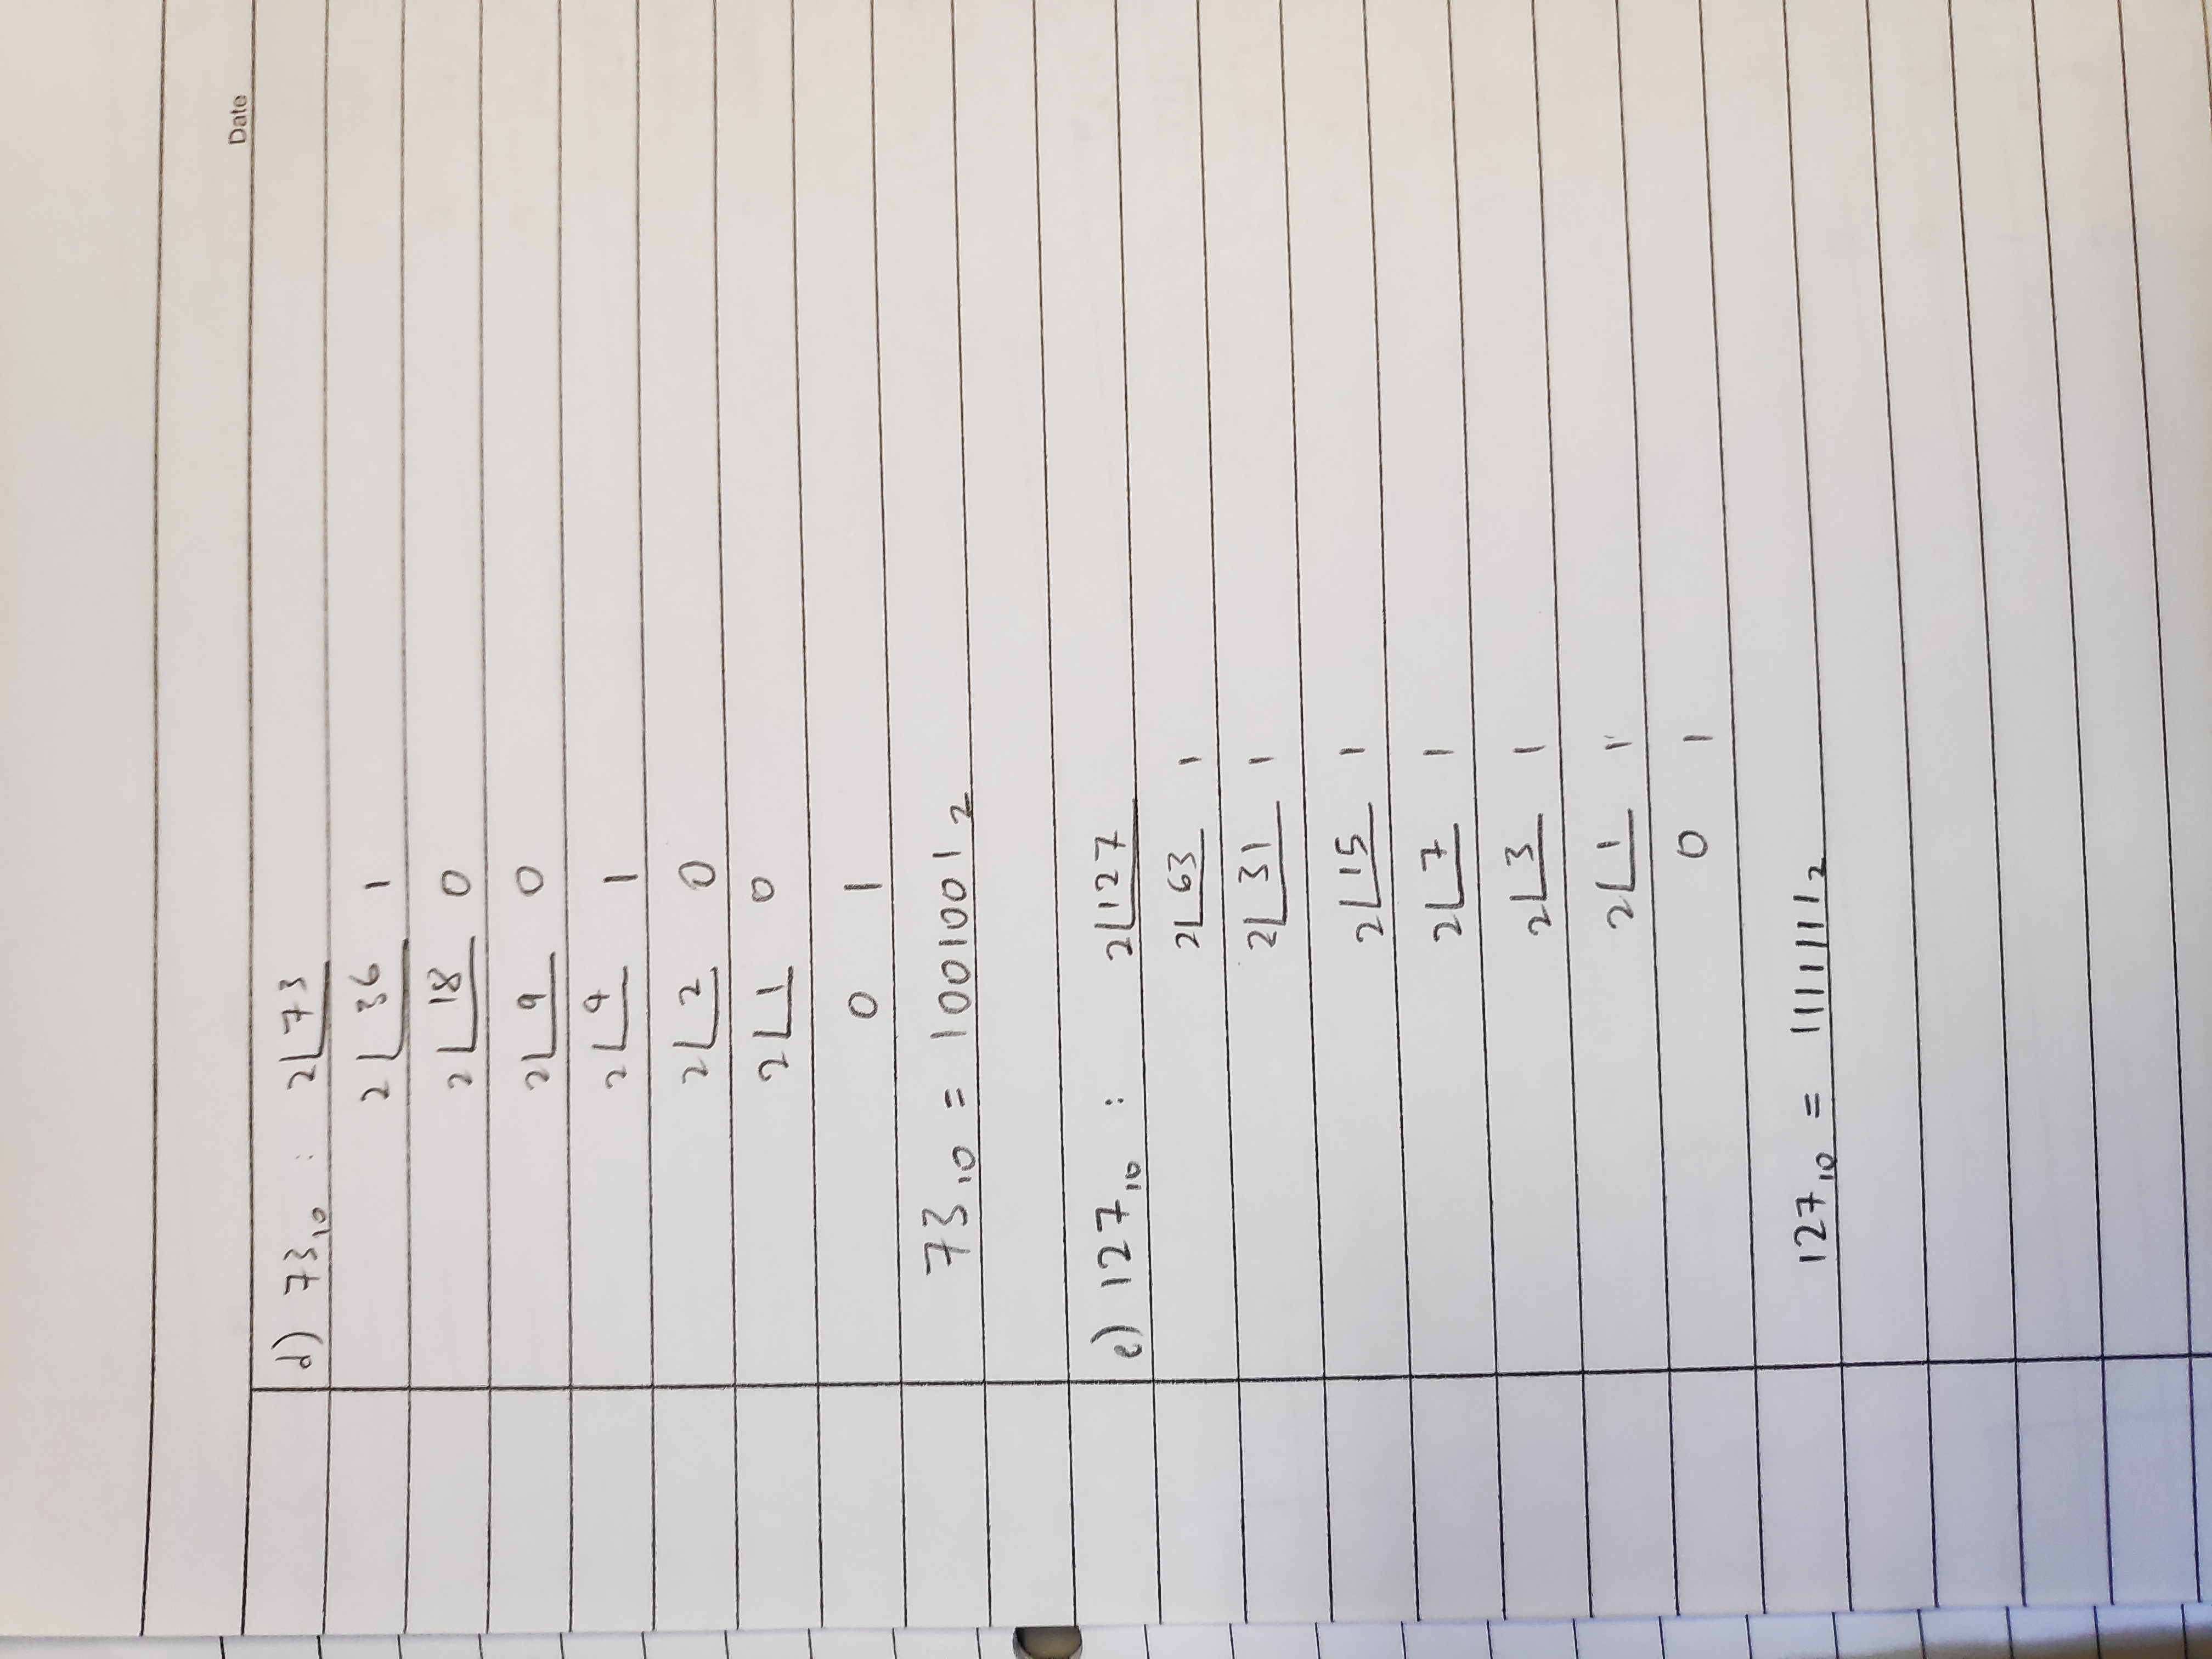 Date
d) 73₁₀ : 2⌊73
2⌊36 1
2⌊18 0
2⌊9 0
2⌊4 1
2⌊2 0
2⌊1 0
0 1
73₁₀ = 1001001₂
e) 127₁₀ : 2⌊127
2⌊63 1
2⌊31 1
2⌊15 1
2⌊7 1
2⌊3 1
2⌊1 1
0 1
127₁₀ = 11111111₂